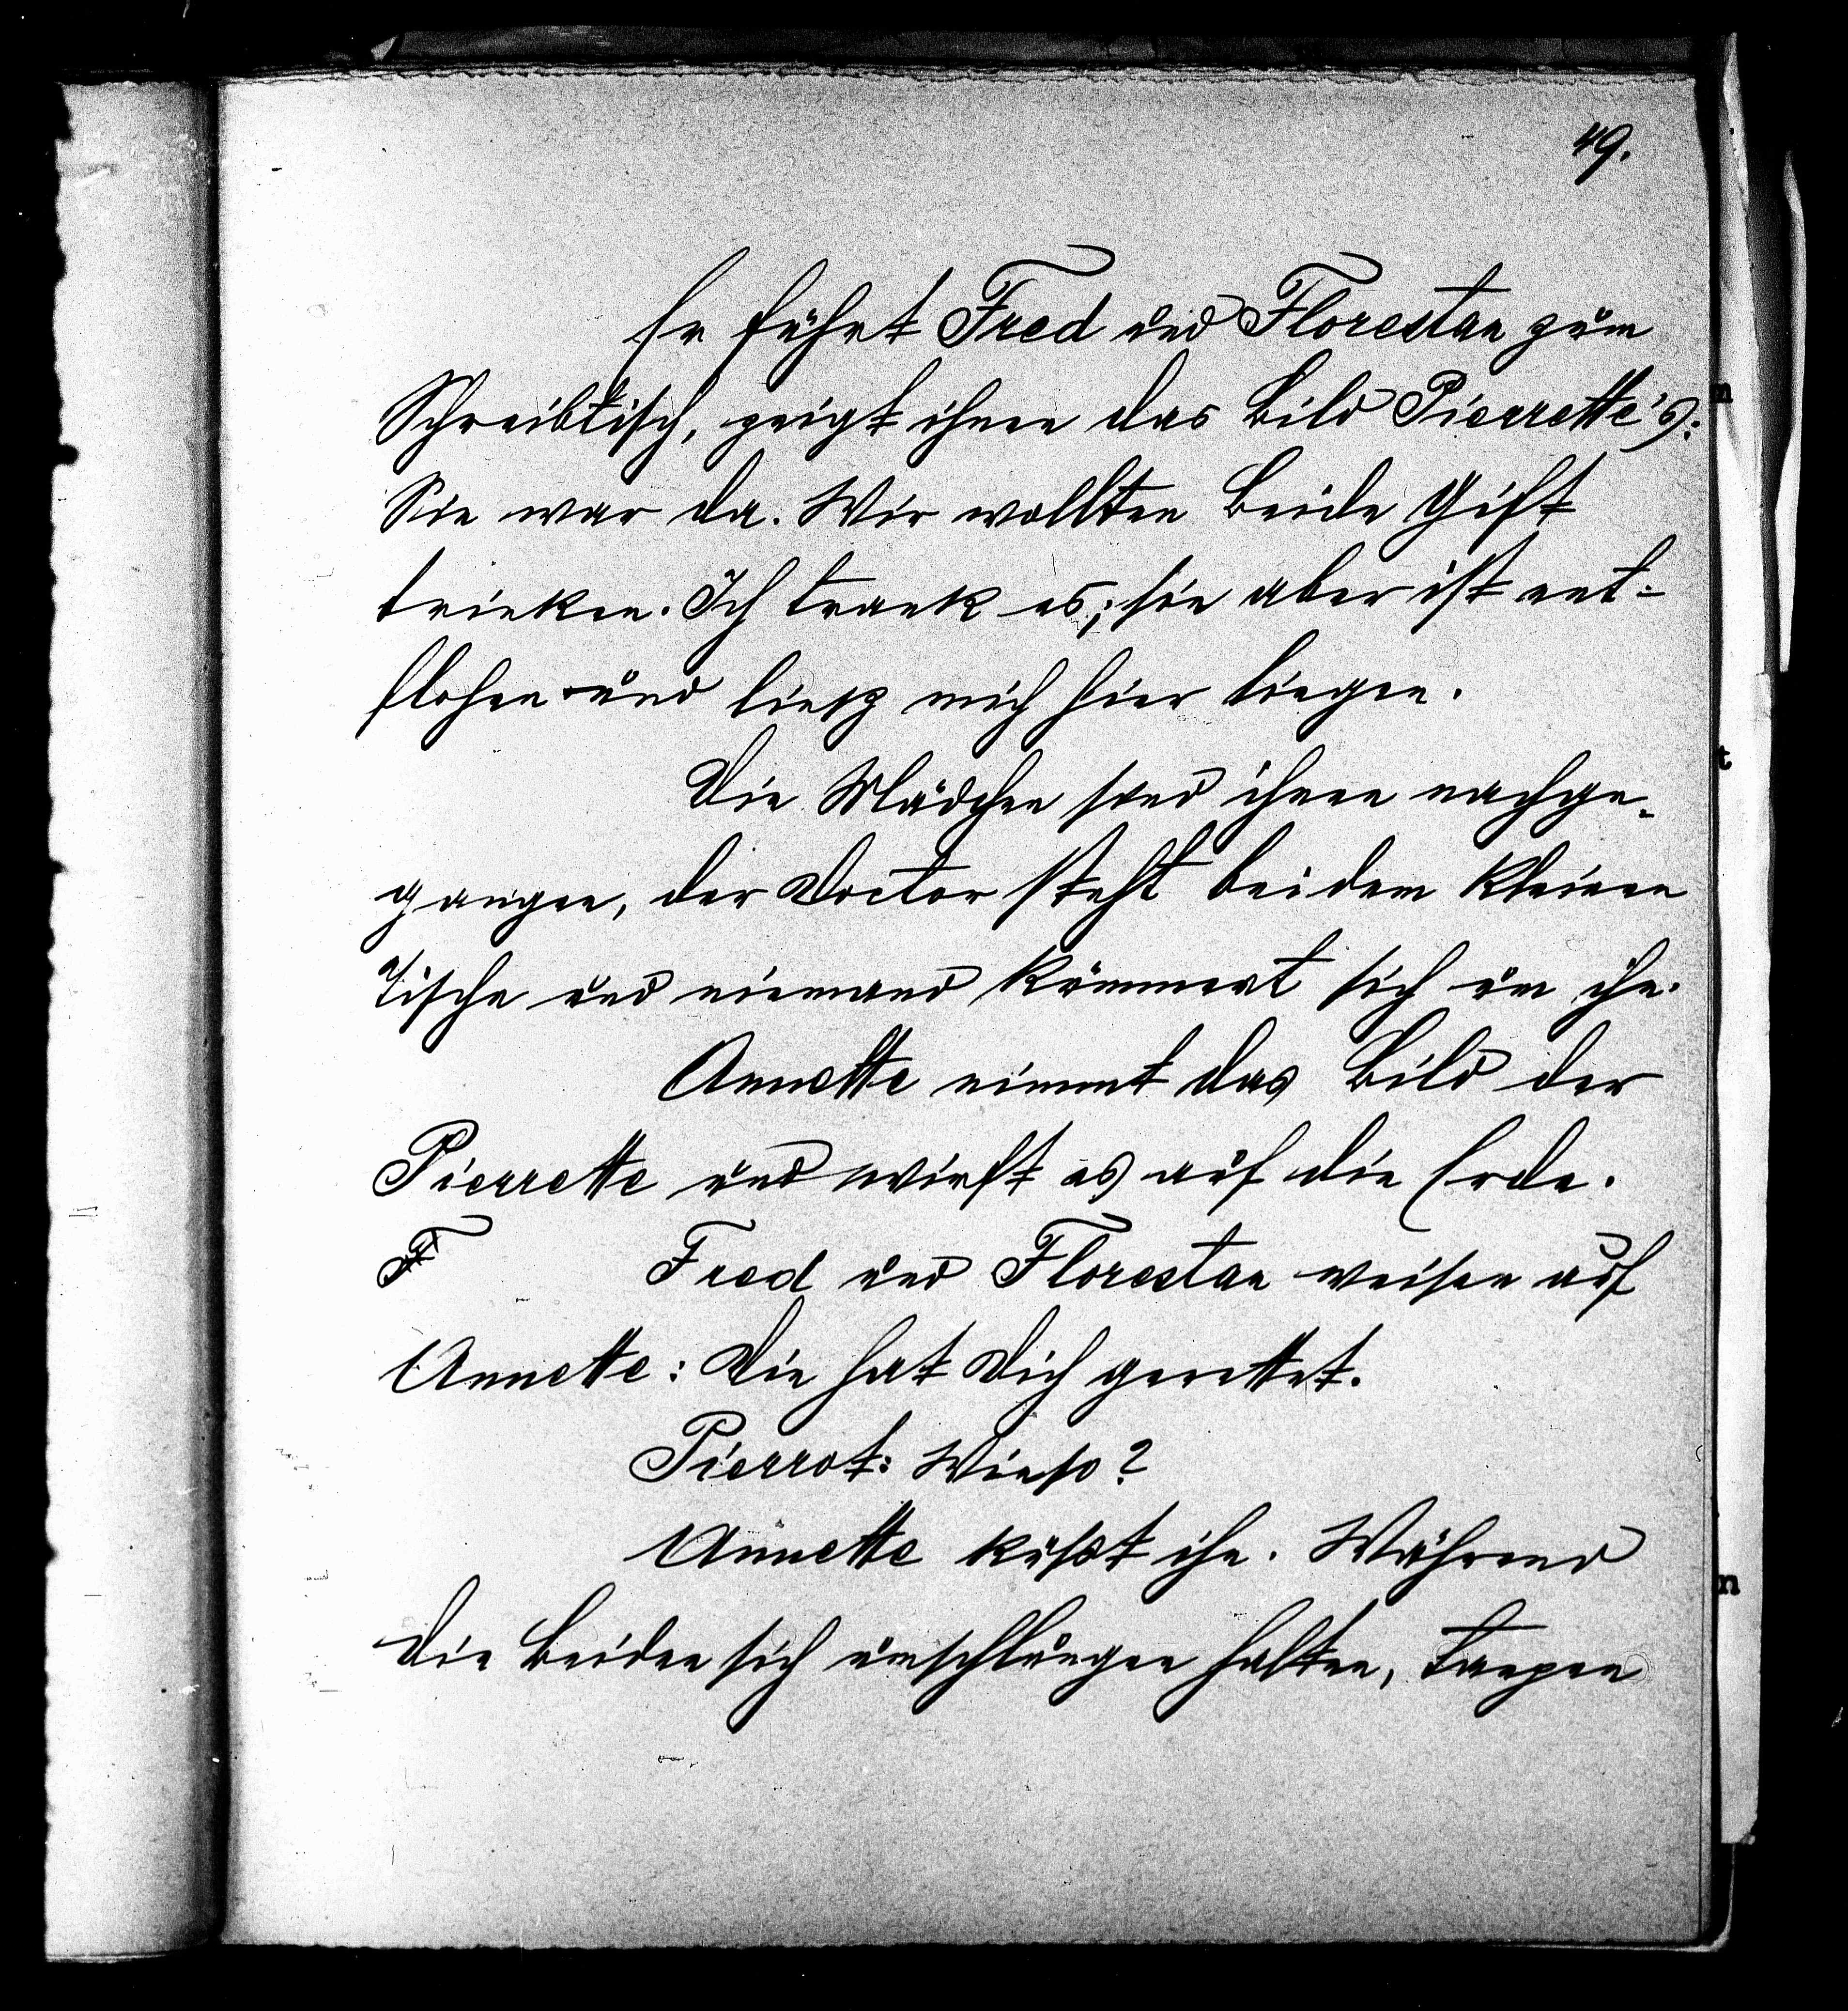 49.
Er führt Fred und Florestan zum
Schreibtisch, zeigt ihnen das Bild Pierrette's:
Sie war da. Wir wollten Beide Gift
trinken. Ich trank es; sie aber ist ent-
flohen und liess mich hier liegen.
Die Mädchen sind ihnen nachge-
gangen, der Doctor steht bei dem kleinen
Tische und niemand kümmert sich um ihn.
Annette nimmt das Bild der
Pierrette und wirft es auf die Erde.
Fred und Florestan weisen auf
Annette: Die hat Dich gerettet.
Pierrot: Wieso?
Annette küßt ihn. Während
die Beiden sich umschlungen halten, tanzen